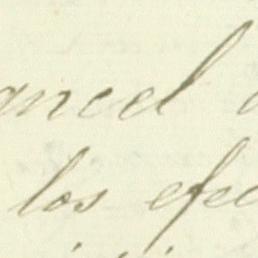 ancel
los efec